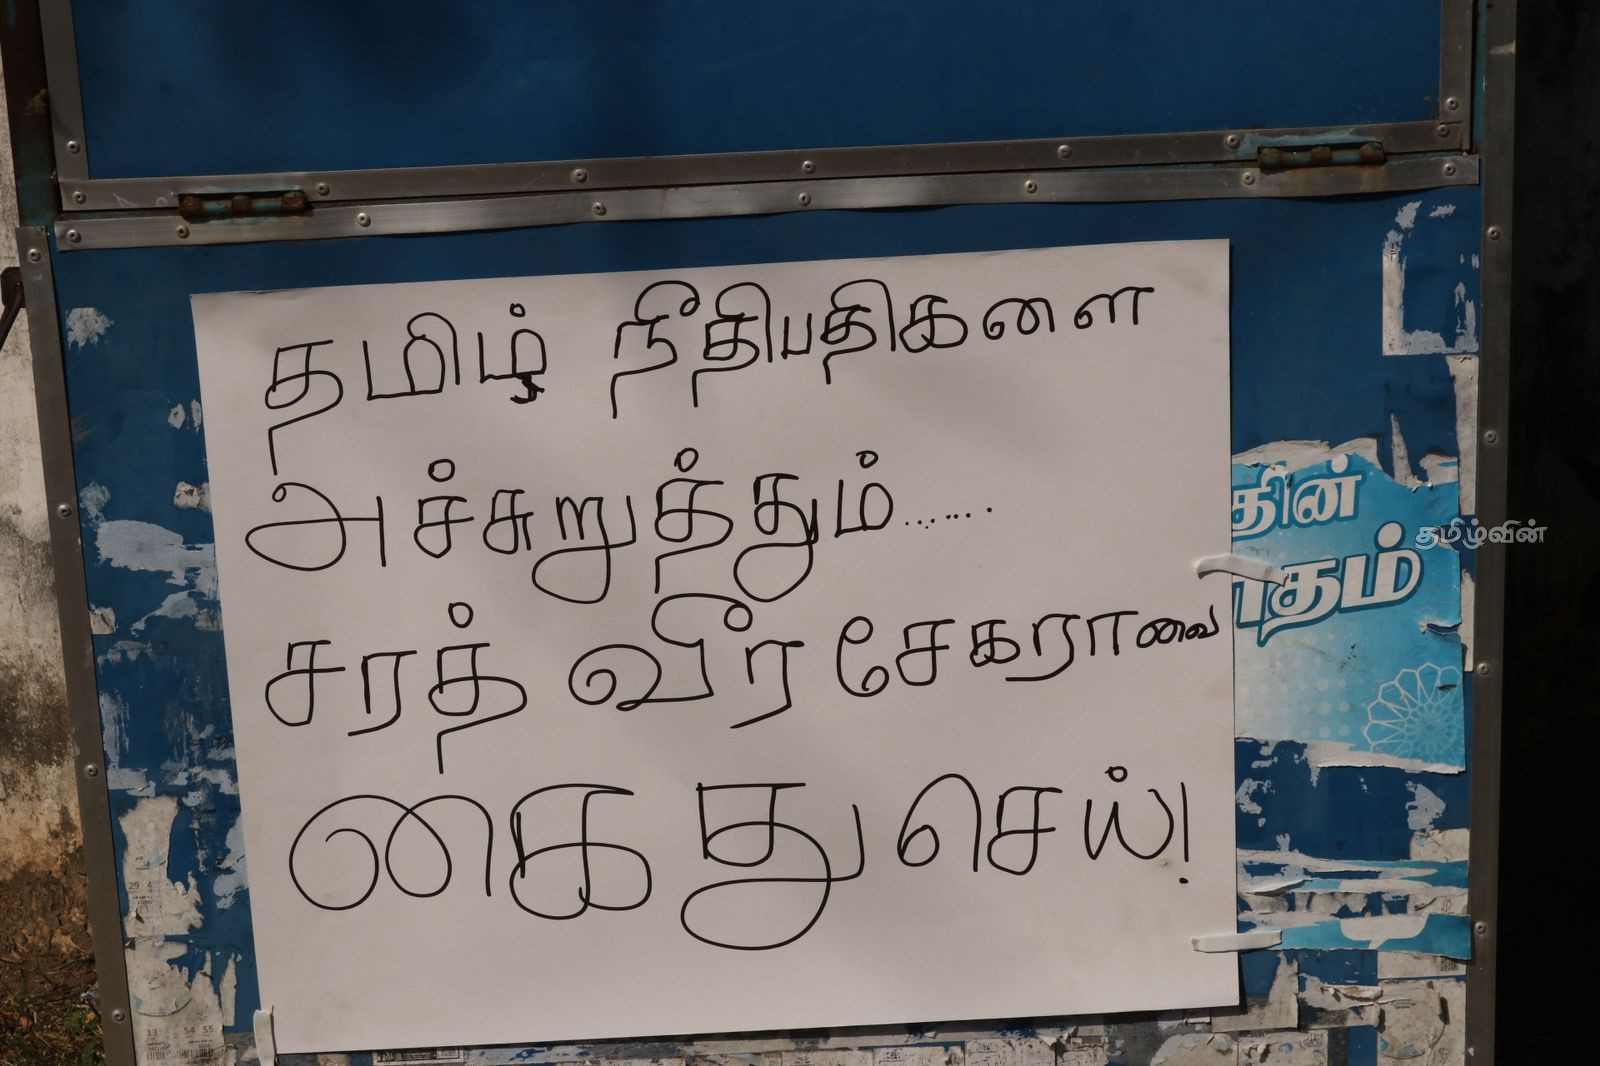 தமிழ் நீதிபதிகளை
அச்சுறுத்தும்......
சரத் வீர சேகராவை
கைது செய்!
தின்
தம்
தமிழ்வின்
29 4
13 54 55